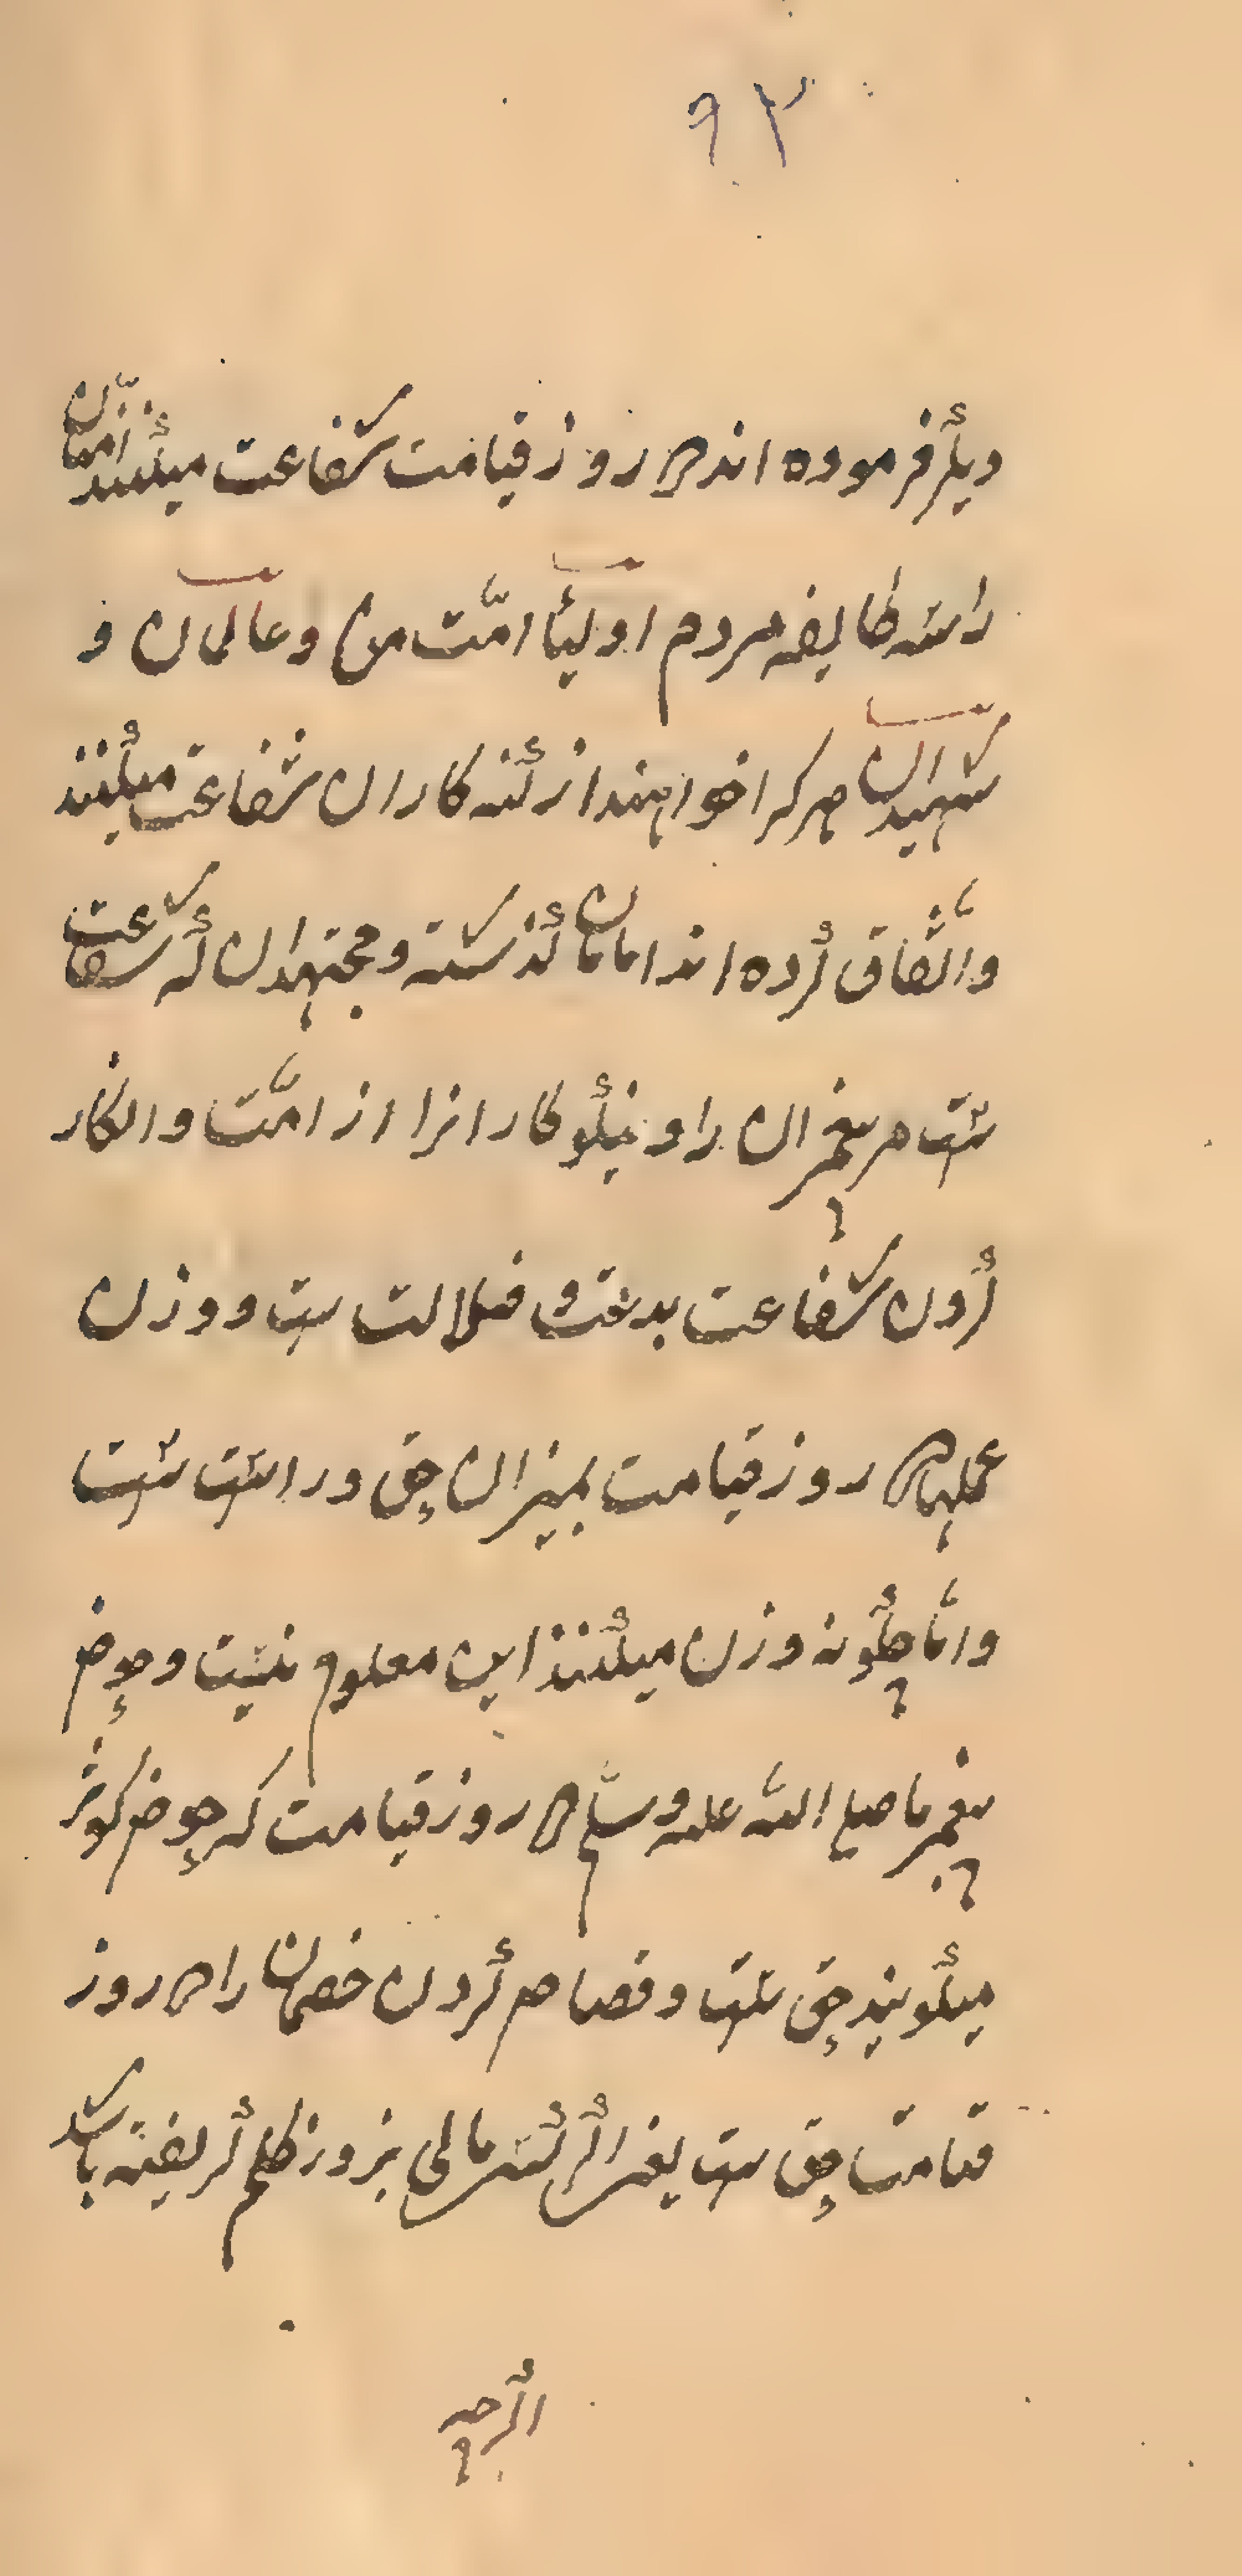 ۹۳
دیگر فرموده اند در روز قیامت شفاعت میکنند امتان
را سه طایفه مردم اولیأ امّت من و عالمان و
شهیدان هر کرا خواهند از گنه کاران شفاعت میکنند
و اتّفاق کرده اند امامان گذشته و مجتهدان که شفاعت
ست مر پیغمبران را و نیکو کارانرا از امّت و انکار
کردن شفاعت بدعت و ضلالت ست و وزن
عملها در روز قیامت بمیزان حق و راست ست
و امّا چگونه وزن میکنند این معلوم نیست و حوض
پیغمبر ما صلی الله علیه وسلّم در روز قیامت که حوض کوثر
میگویند حق ست و قصاص کردن خصمان را در روز
قیامت حق ست یعنی اگر کسی مالی بزور ظلم گریفته باشد
اگرچه